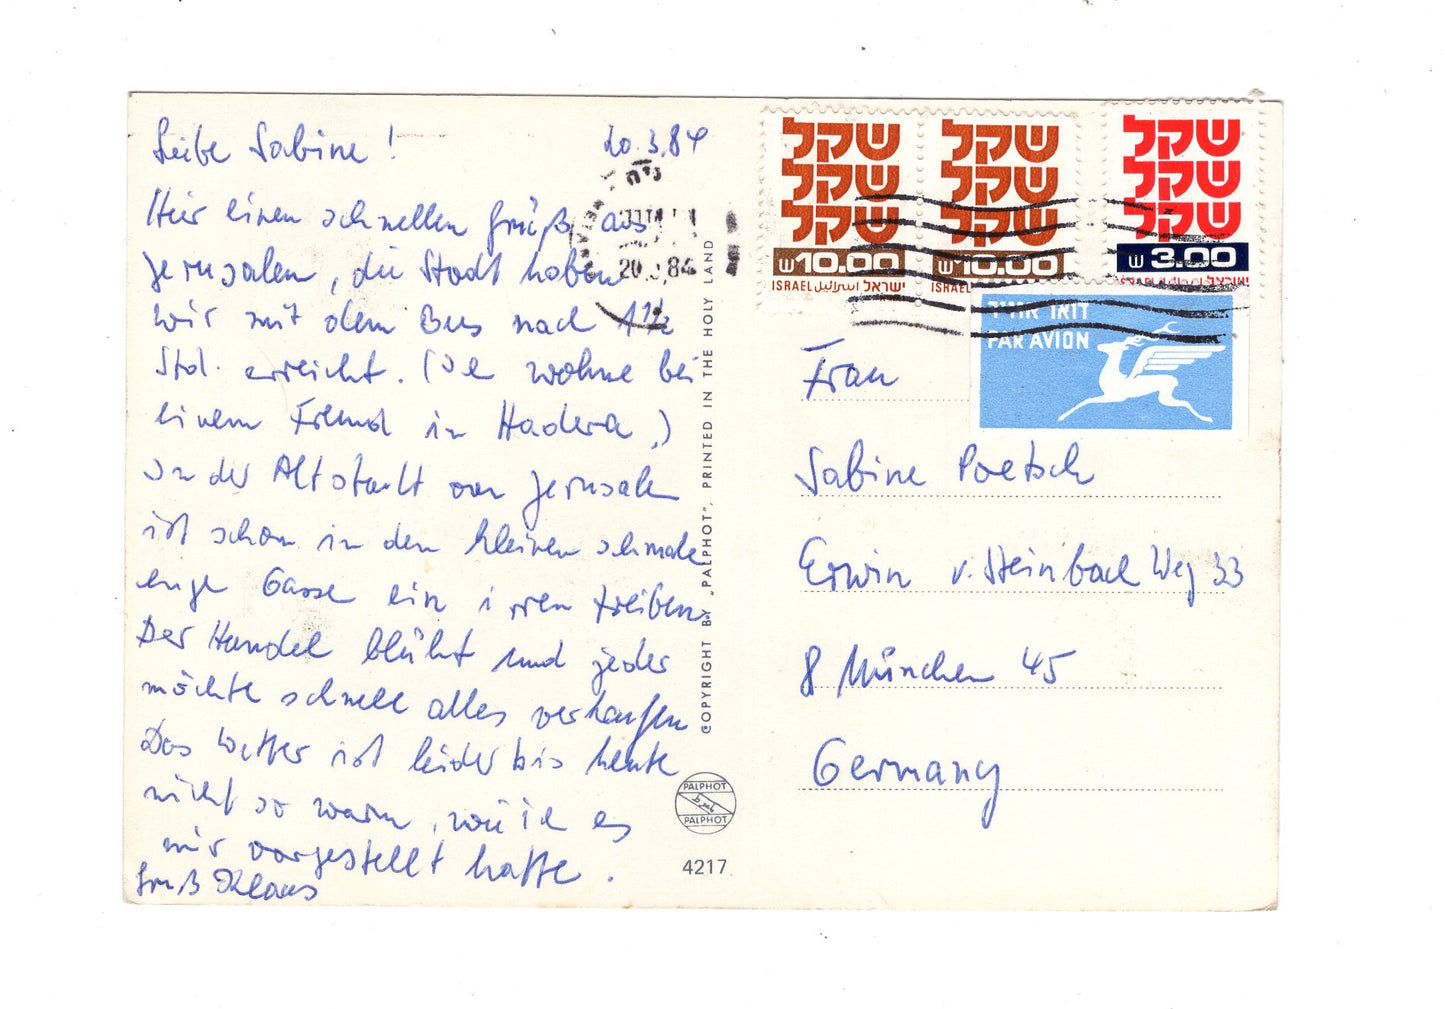 Liebe Sabine! 20.3.84
Hier einen schnellen Gruß aus
Jerusalem, die Stadt haben
wir mit dem Bus nach 1 1/2
Std. erreicht. (Ich wohne bei
einem Freund in Hadera.)
In der Altstadt von Jerusalem
ist schon in den kleinen schmale
enge Gasse ein irren treiben
Der Handel blüht und jeder
möchte schnell alles verkaufen
Das Wetter ist leider bis heute
nicht so warm, wie ich es
mir vorgestellt hatte.
Gruß Klaus
COPYRIGHT BY „PALPHOT", PRINTED IN THE HOLY LAND
PALPHOT
PALPHOT
4217
20 84
שקל שקל שקל
שקל שקל שקל
שקל שקל שקל
ש10.00 ש10.00 ש3.00
ISRAEL اسرائيل ישראל ISRAEL ISRAEL ישראל
דואר אויר
PAR AVION
Frau
Sabine Poetsch
Erwin v. Steinbach Weg 33
8 München 45
Germany